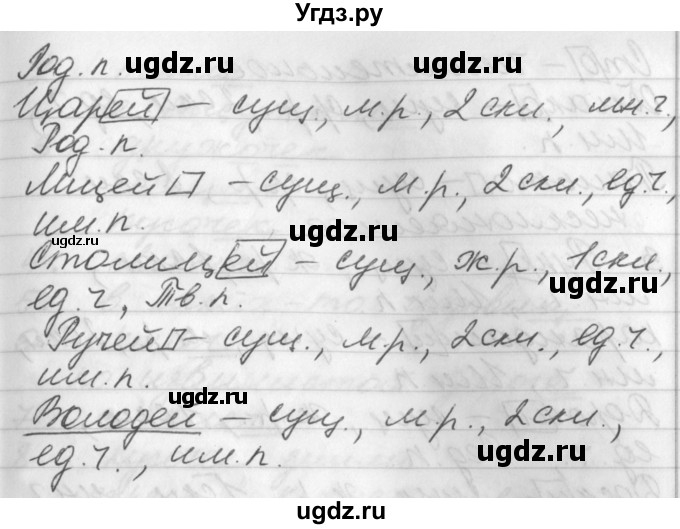 Угдз.ру
Род. п.
Царей – сущ., м.р., 2 скл., мн.ч.,
Род. п.
Лицей – сущ., м.р., 2 скл., ед.ч.,
им.п.
Столицей – сущ., ж.р., 1 скл.,
ед.ч., Тв.п.
Ручей – сущ., м.р., 2 скл., ед.ч.,
им.п.
Володей – сущ., м.р., 2 скл.,
ед.ч., им.п.
ugdz.ru
ugdz.ru
ugdz.ru
ugdz.ru
ugdz.ru
ugdz.ru
ugdz.ru
ugdz.ru
ugdz.ru
ugdz.ru
ugdz.ru